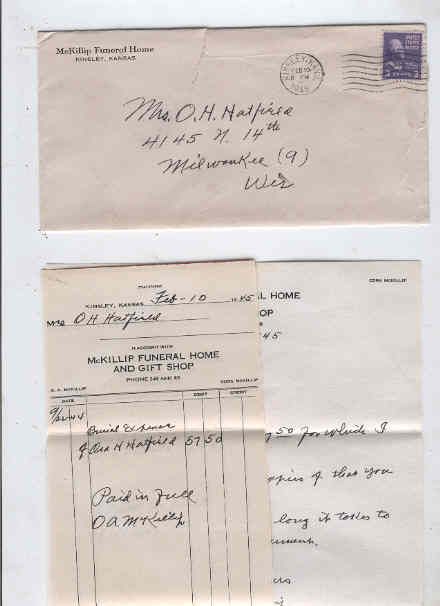 McKillip Funeral Home
KINSLEY, KANSAS
KINSLEY, KANS.
FEB 10
PM
1945
UNITED STATES POSTAGE
3 CENTS 3
Mrs. O. H. Hatfield
4145 N. 14th
Milwaukee (9)
Wis
KINSLEY, KANSAS, Feb-10 1945
Mrs O H Hatfield
IN ACCOUNT WITH
McKILLIP FUNERAL HOME
AND GIFT SHOP
PHONE
O. A. McKILLIP
CORA McKILLIP
DATE
DEBIT
CREDIT
Burial Expenses
of Ora H Hatfield 57 50
Paid in full
O A McKillip
AL HOME
CORA McKILLIP
SHOP
45
50 for which I
of that you
long it takes to